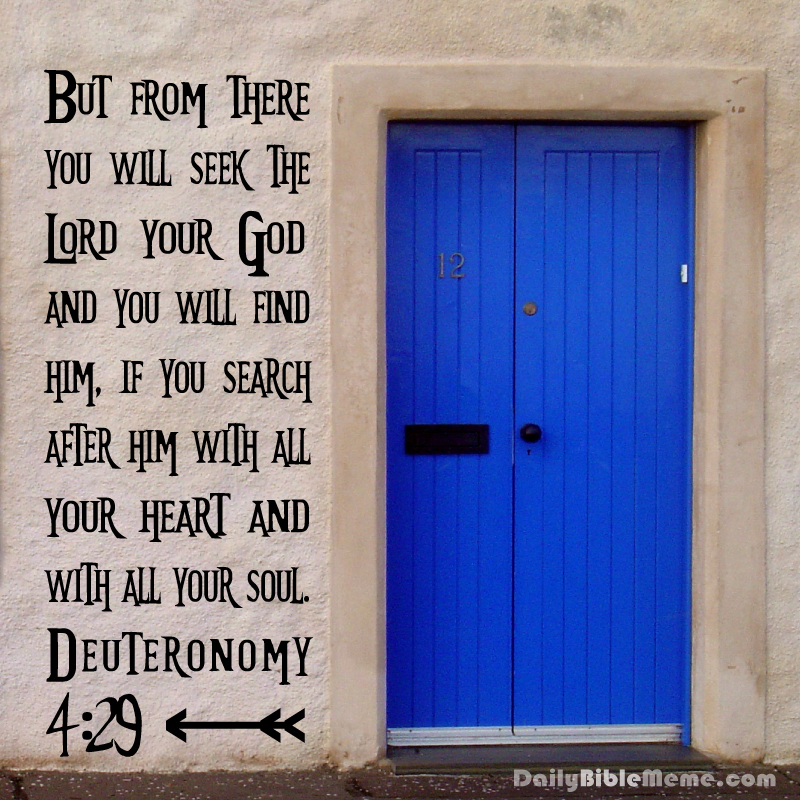 But from there
you will seek the
Lord your God
and you will find
him, if you search
after him with all
your heart and
with all your soul.
Deuteronomy
4:29
12
DailyBibleMeme.com